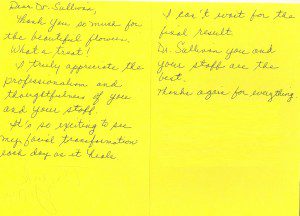 Dear Dr. Sullivan,
Thank you so much for
the beautiful flowers.
What a treat!
I truly appreciate the
professionalism and
thoughtfulness of you
and your staff.
It's so exciting to see
my facial transformation
each day as it heals
I can't wait for the
final result.
Dr. Sullivan you and
your staff are the
best.
Thanks again for everything.